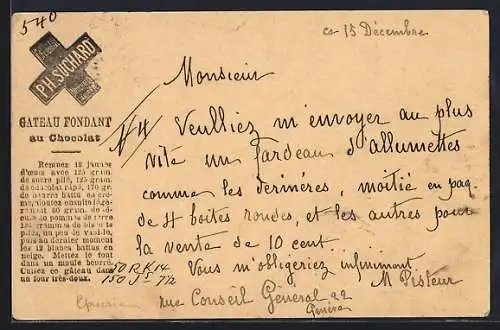 540
PH. SUCHARD
GATEAU FONDANT
au Chocolat
Remuez 12 jaunes
d'œufs avec 125 gram.
de sucre pilé, 125 gram.
de chocolat râpé, 170 gr.
de beurre battu en crè-
me, ensuite
60 gram. de
cule de pomme de terre
125 grammes de
pilés, un peu de vanille
puis au dernier moment
les 12 blancs battus en
neige. Mettez le tout
dans un moule beurré.
Cuisez ce gâteau dans
un four très-doux.
ce 15 Décembre
Monsieur
Veulliez m'envoyer au plus
vite un fardeau d'allumettes
comme les dernières, moitié en paq.
de 4 boites rondes, et les autres pour
la vente de 10 cent.
Vous m'obligeriez infiniment
M Pisteur
rue Conseil Général 22
Genève
50 R K 14
Epicerie